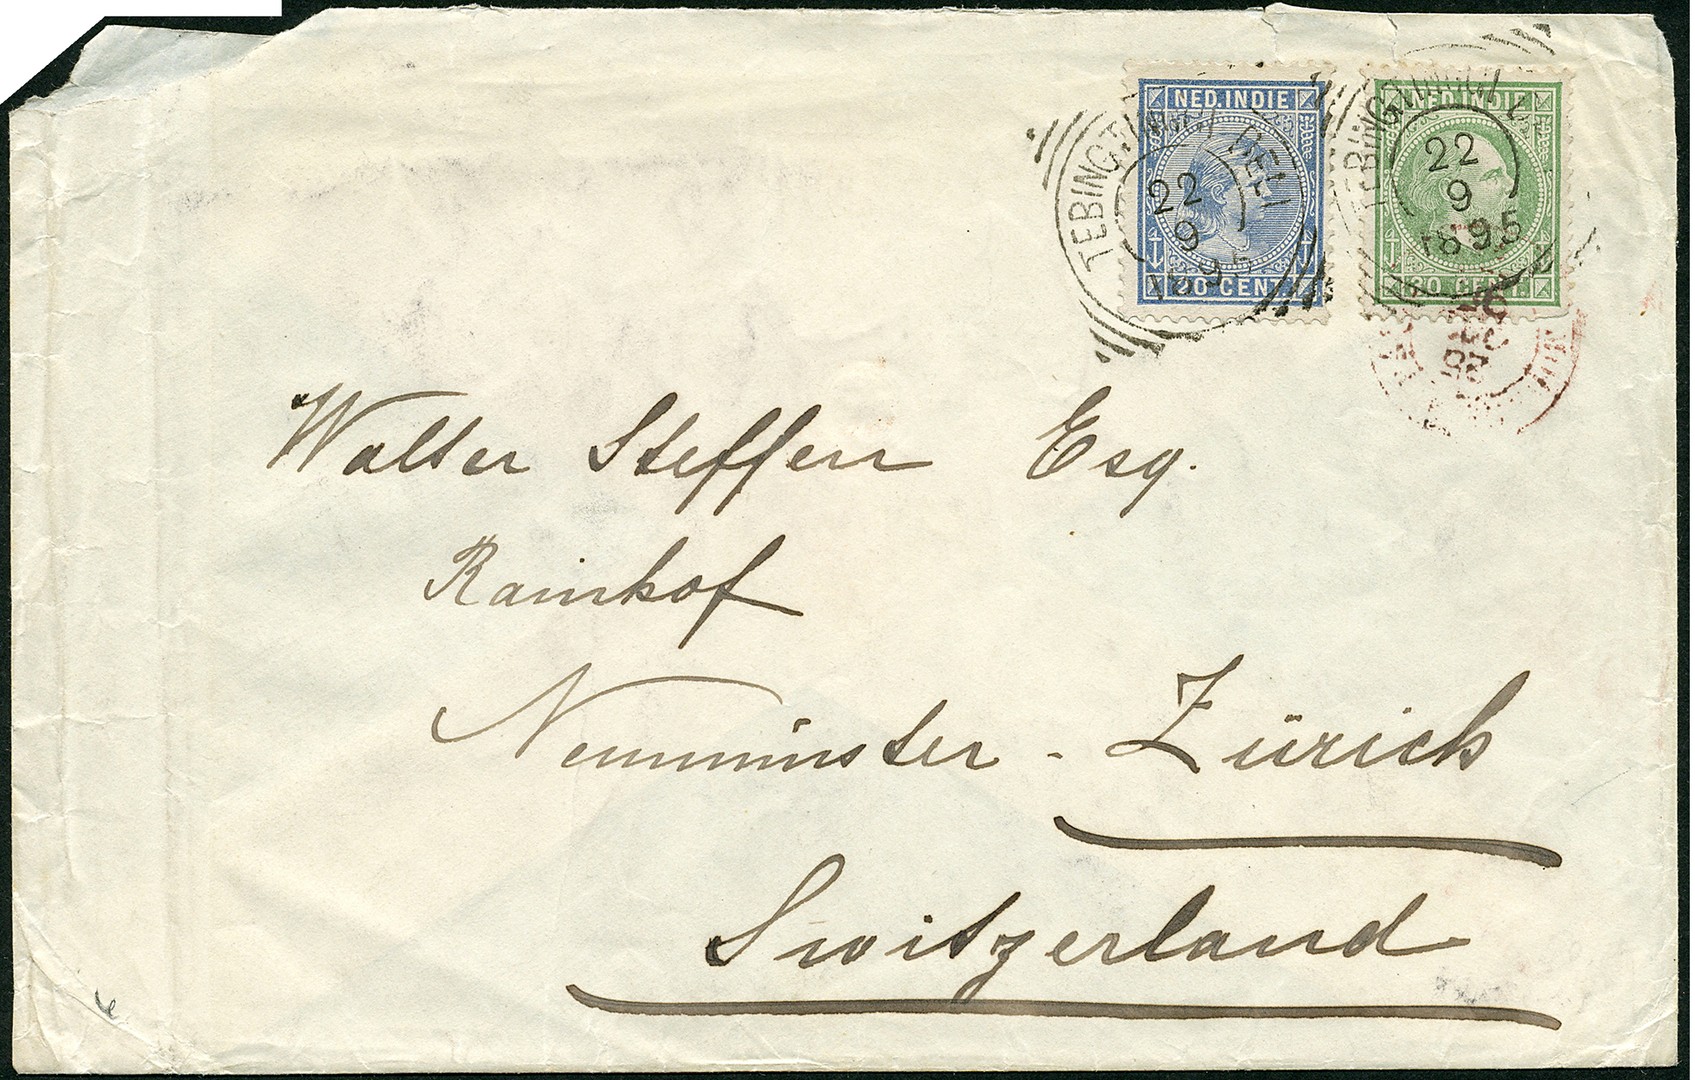 NED.INDIE
NED.INDIE
22
9
1895
DELI
22
9
1895
20 CENT.
CENT.
Walter Steffen Esq.
Rainhof
Neumünster - Zürich
Switzerland